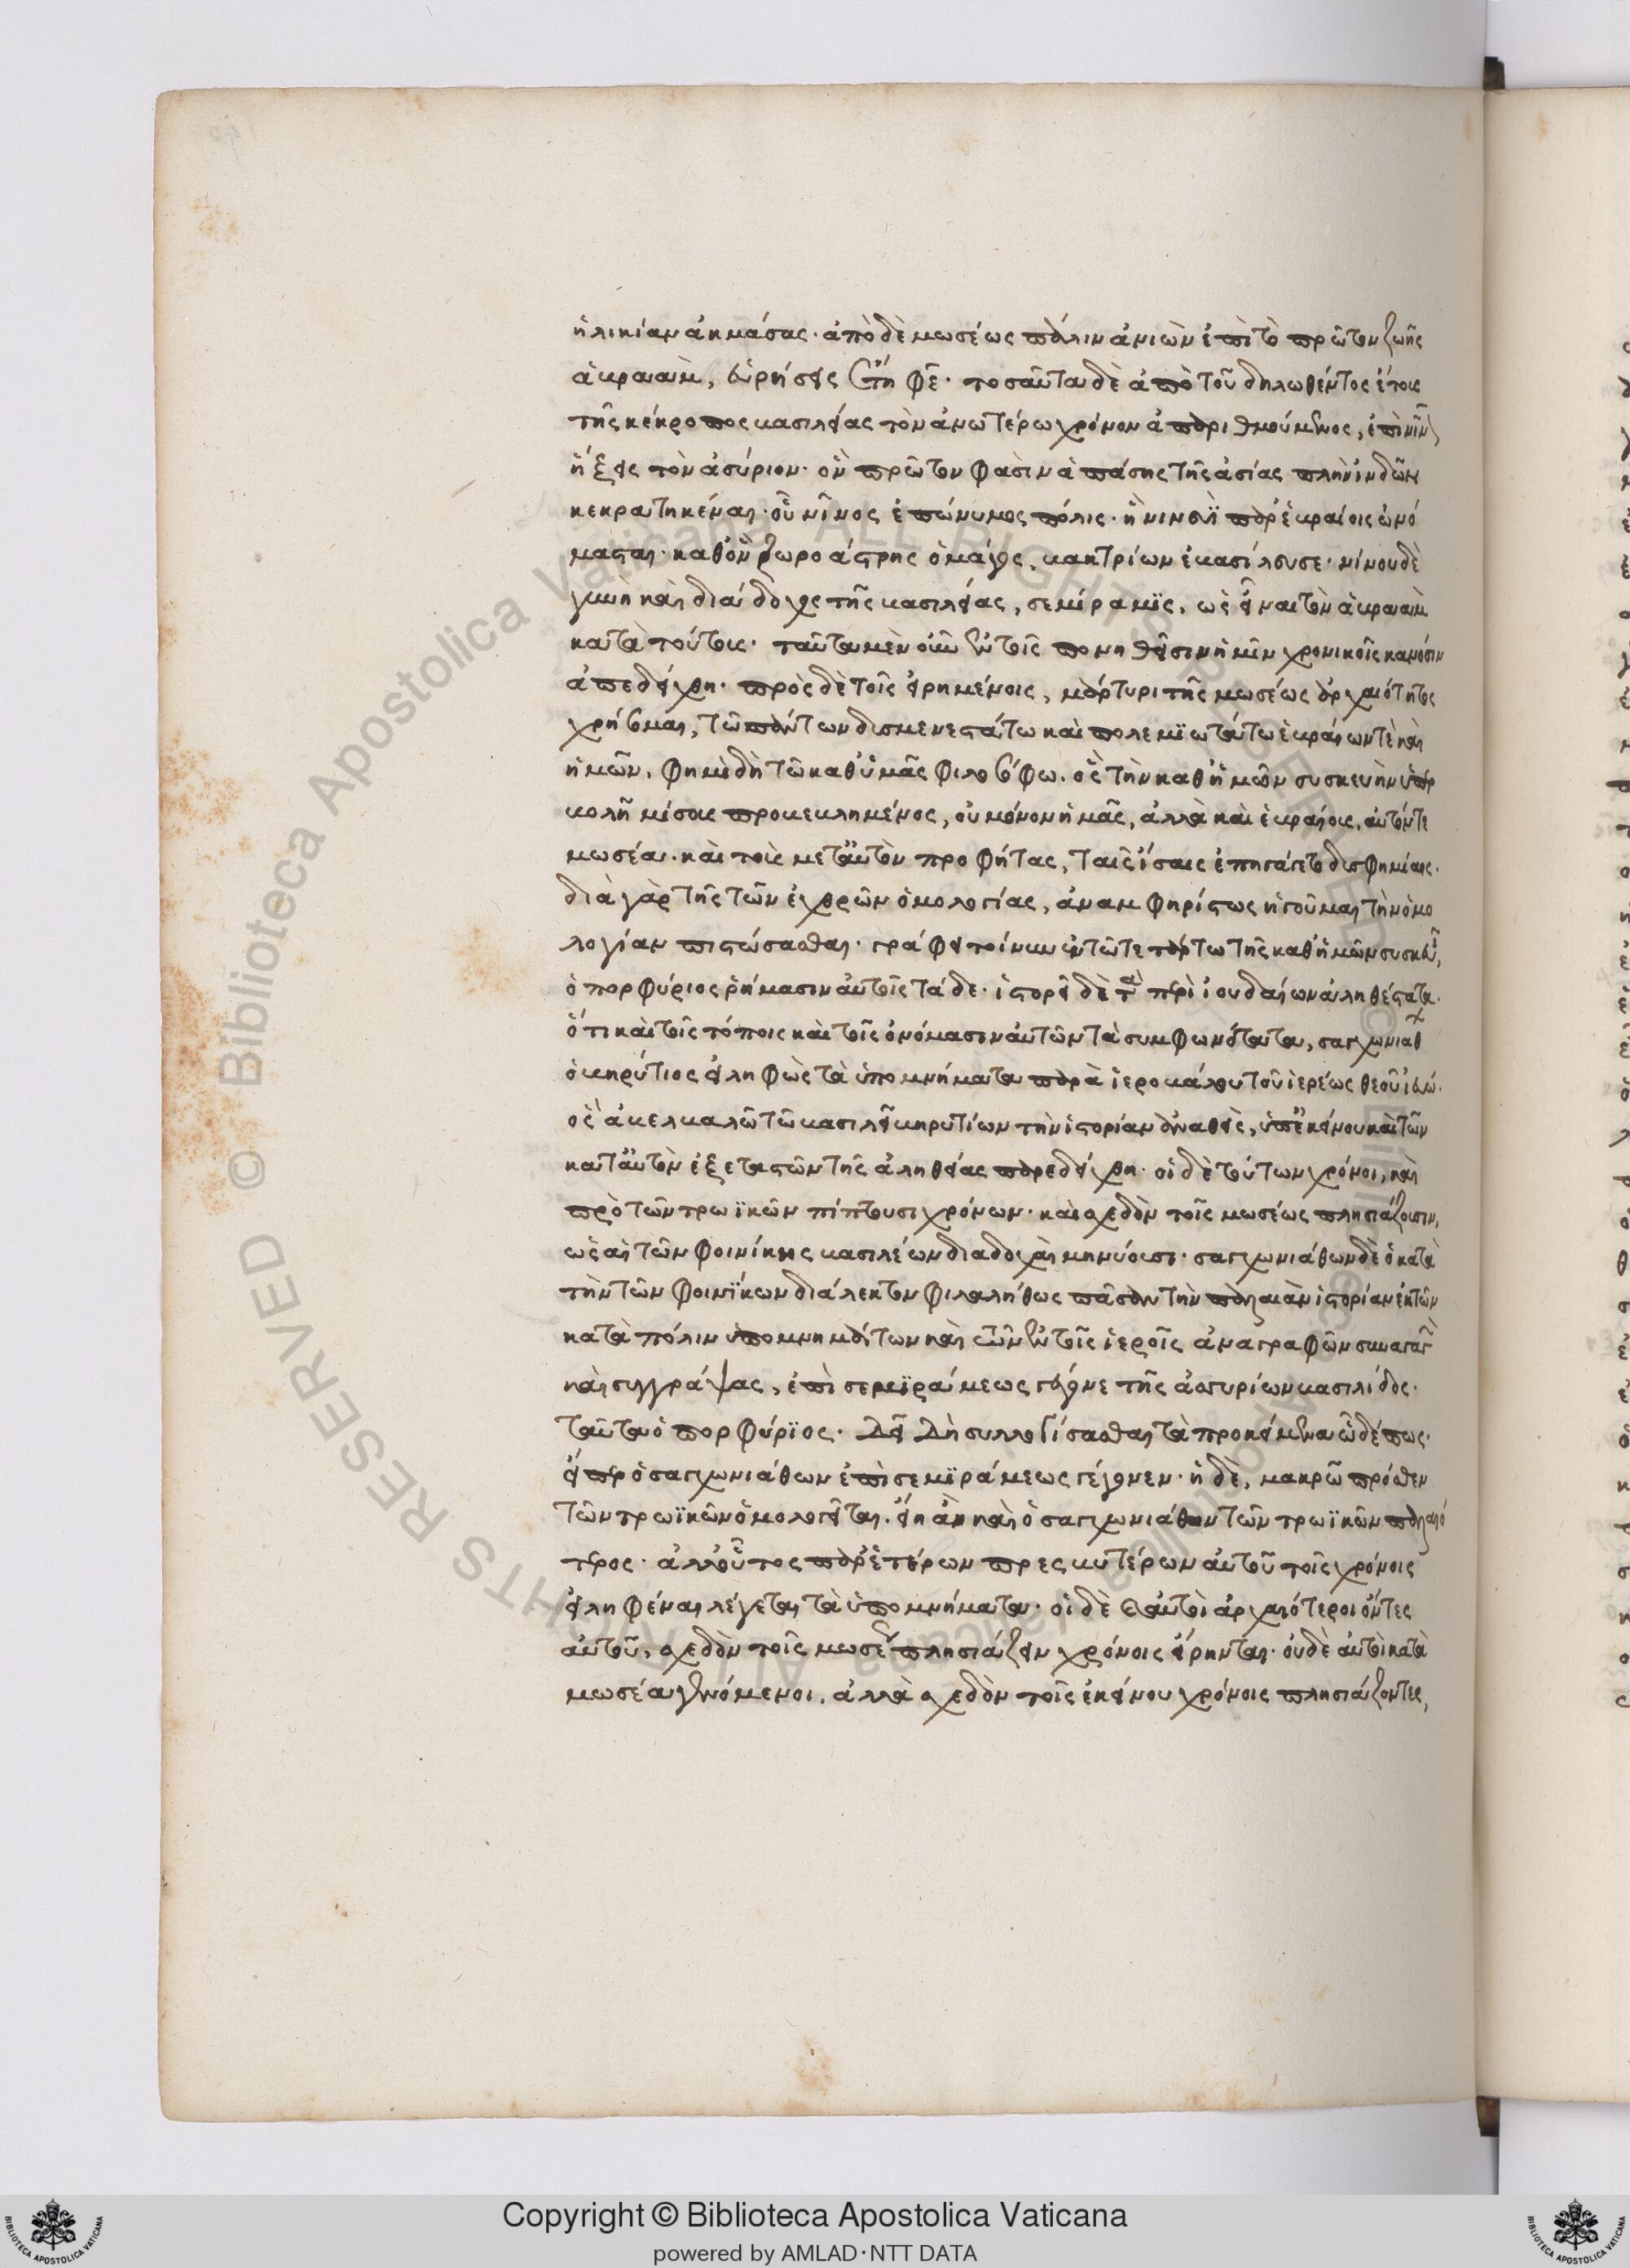 ἡλικίαν ἀκμάσας· ἀπὸ δὲ μωσέως πάλιν ἀνιὼν ἐπὶ τὸ πρῶτον ζωῆς
ἀβραὰμ, εὑρήσεις ἔτη φε̄· τοσαῦτα δὲ ἀπὸ τοῦ δηλωθέντος ἔτους
τῆς κέκροπος βασιλείας τὸν ἀνωτέρω χρόνον ἀπαριθμούμενος, ἐπὶ νῖνον
ἥξεις τὸν ἀσύριον· ὃν πρῶτον φασὶν ἁπάσης τῆς ἀσίας πλὴν ἰνδῶν
κεκρατηκέναι· οὗ νῖνος ἐπώνυμος πόλις· ἣ νινευῒ παρ' ἑβραίοις ὠνό
μασται· καθ' ὃν ζωροάστρης ὁ μάγος, βακτρίων ἐβασίλευσε· νίνου δὲ
γυνὴ καὶ διάδοχος τῆς βασιλείας, σεμίραμϊς, ὡς εἶναι τὸν ἀβραὰμ
κατὰ τούτους· ταῦτα μὲν οὖν ἐν τοῖς πονηθεῖσιν ἡμῖν χρονικοῖς κανόσιν
ἀπεδείχθη· πρὸς δὲ τοῖς εἰρημένοις, μάρτυρι τῆς μωσέως ἀρχαιότητος
χρήσομαι, τῶ πάντων δυσμενεστάτω καὶ πολεμϊωτάτω ἑβραίων τὲ καὶ
ἡμῶν, φημὶ δὴ τῶ καθ' ἡμᾶς φιλοσόφω. ὃς τὴν καθ' ἡμῶν συσκευὴν ὑπερ
βολῆ μίσους προβεβλημένος, οὐ μόνον ἡμᾶς, ἀλλὰ καὶ ἑβραίους, αὐτόν τε
μωσέα· καὶ τοὺς μετ' αὐτὸν προφήτας, ταῖς ἴσαις ἐπηγάγετο δυσφημίαις·
διὰ γὰρ τῆς τῶν ἐχθρῶν ὁμολογίας, ἀναμφηρίστως ἡγοῦμαι τὴν ὁμο
λογίαν πιστώσασθαι· γράφει τοίνυν ἐν τῶ τετάρτω τῆς καθ' ἡμῶν συσκευῆς,
ὁ πορφύριος ῥήμασιν αὐτοῖς τάδε· ἱστορεῖ δὲ τὰ περὶ ἰουδαίων ἀληθέστατα·
ὅτι καὶ τοῖς τόποις καὶ τοῖς ὀνόμασιν αὐτῶν τὰ συμφωνότατα, σαγχωνιαθ
ὁ βηρύτιος εἰληφὼς τὰ ὑπομνήματα παρὰ ἱεροβάλου τοῦ ἱερέως θεοῦ ἰευώ·
ὃς ἀβελβαλῶ τῶ βασιλεῖ βηρυτίων τὴν ἱστορίαν ἀναθεὶς, ὑπ' ἐκείνου καὶ τῶν
κατ' αὐτὸν ἐξεταστῶν τῆς ἀληθείας παρεδείχθη· οἱ δὲ τούτων χρόνοι, καὶ
πρὸ τῶν τρωϊκῶν πίπτουσι χρόνων· καὶ σχεδὸν τοῖς μωσέως πλησιάζουσιν,
ὡς αἱ τῶν φοινίκης βασιλέων διαδοχαὶ μηνύουσι· σαγχωνιάθων δὲ ὁ κατὰ
τὴν τῶν φοινϊκων διάλεκτον φιλαλήθως πᾶσαν τὴν παλαιὰν ἱστορίαν ἐκ τῶν
κατὰ πόλιν ὑπομνημάτων καὶ τῶν ἐν τοῖς ἱεροῖς ἀναγραφῶν συναγαγὼν
καὶ συγγράψας, ἐπὶ σεμϊράμεως γέγονε τῆς ἀσσυρίων βασιλίδος·
ταῦτα ὁ πορφύρϊος· δεῖ δὴ συλλογίσασθαι τὰ προκείμενα ὧδέ πως·
εἴπερ ὁ σαγχωνιάθων ἐπὶ σεμϊράμεως γέγονεν· ἡ δὲ, μακρῶ πρόσθεν
τῶν τρωϊκῶν ὁμολογεῖται. εἴη ἂν καὶ ὁ σαγχωνιάθων τῶν τρωϊκῶν παλαιό
τερος· ἀλλ' οὗτος παρ' ἑτέρων πρεσβυτέρων αὐτοῦ τοῖς χρόνοις
εἰληφέναι λέγεται τὰ ὑπομνήματα· οἱ δὲ καὶ αὐτοὶ ἀρχαιότεροι ὄντες
αὐτοῦ, σχεδὸν τοῖς μωσέως πλησιάζειν χρόνοις εἴρηνται· οὐδὲ αὐτοὶ κατὰ
μωσέα γενόμενοι, ἀλλὰ σχεδὸν τοῖς ἐκείνου χρόνοις πλησιάζοντες,
Copyright © Biblioteca Apostolica Vaticana
powered by AMLAD·NTT DATA